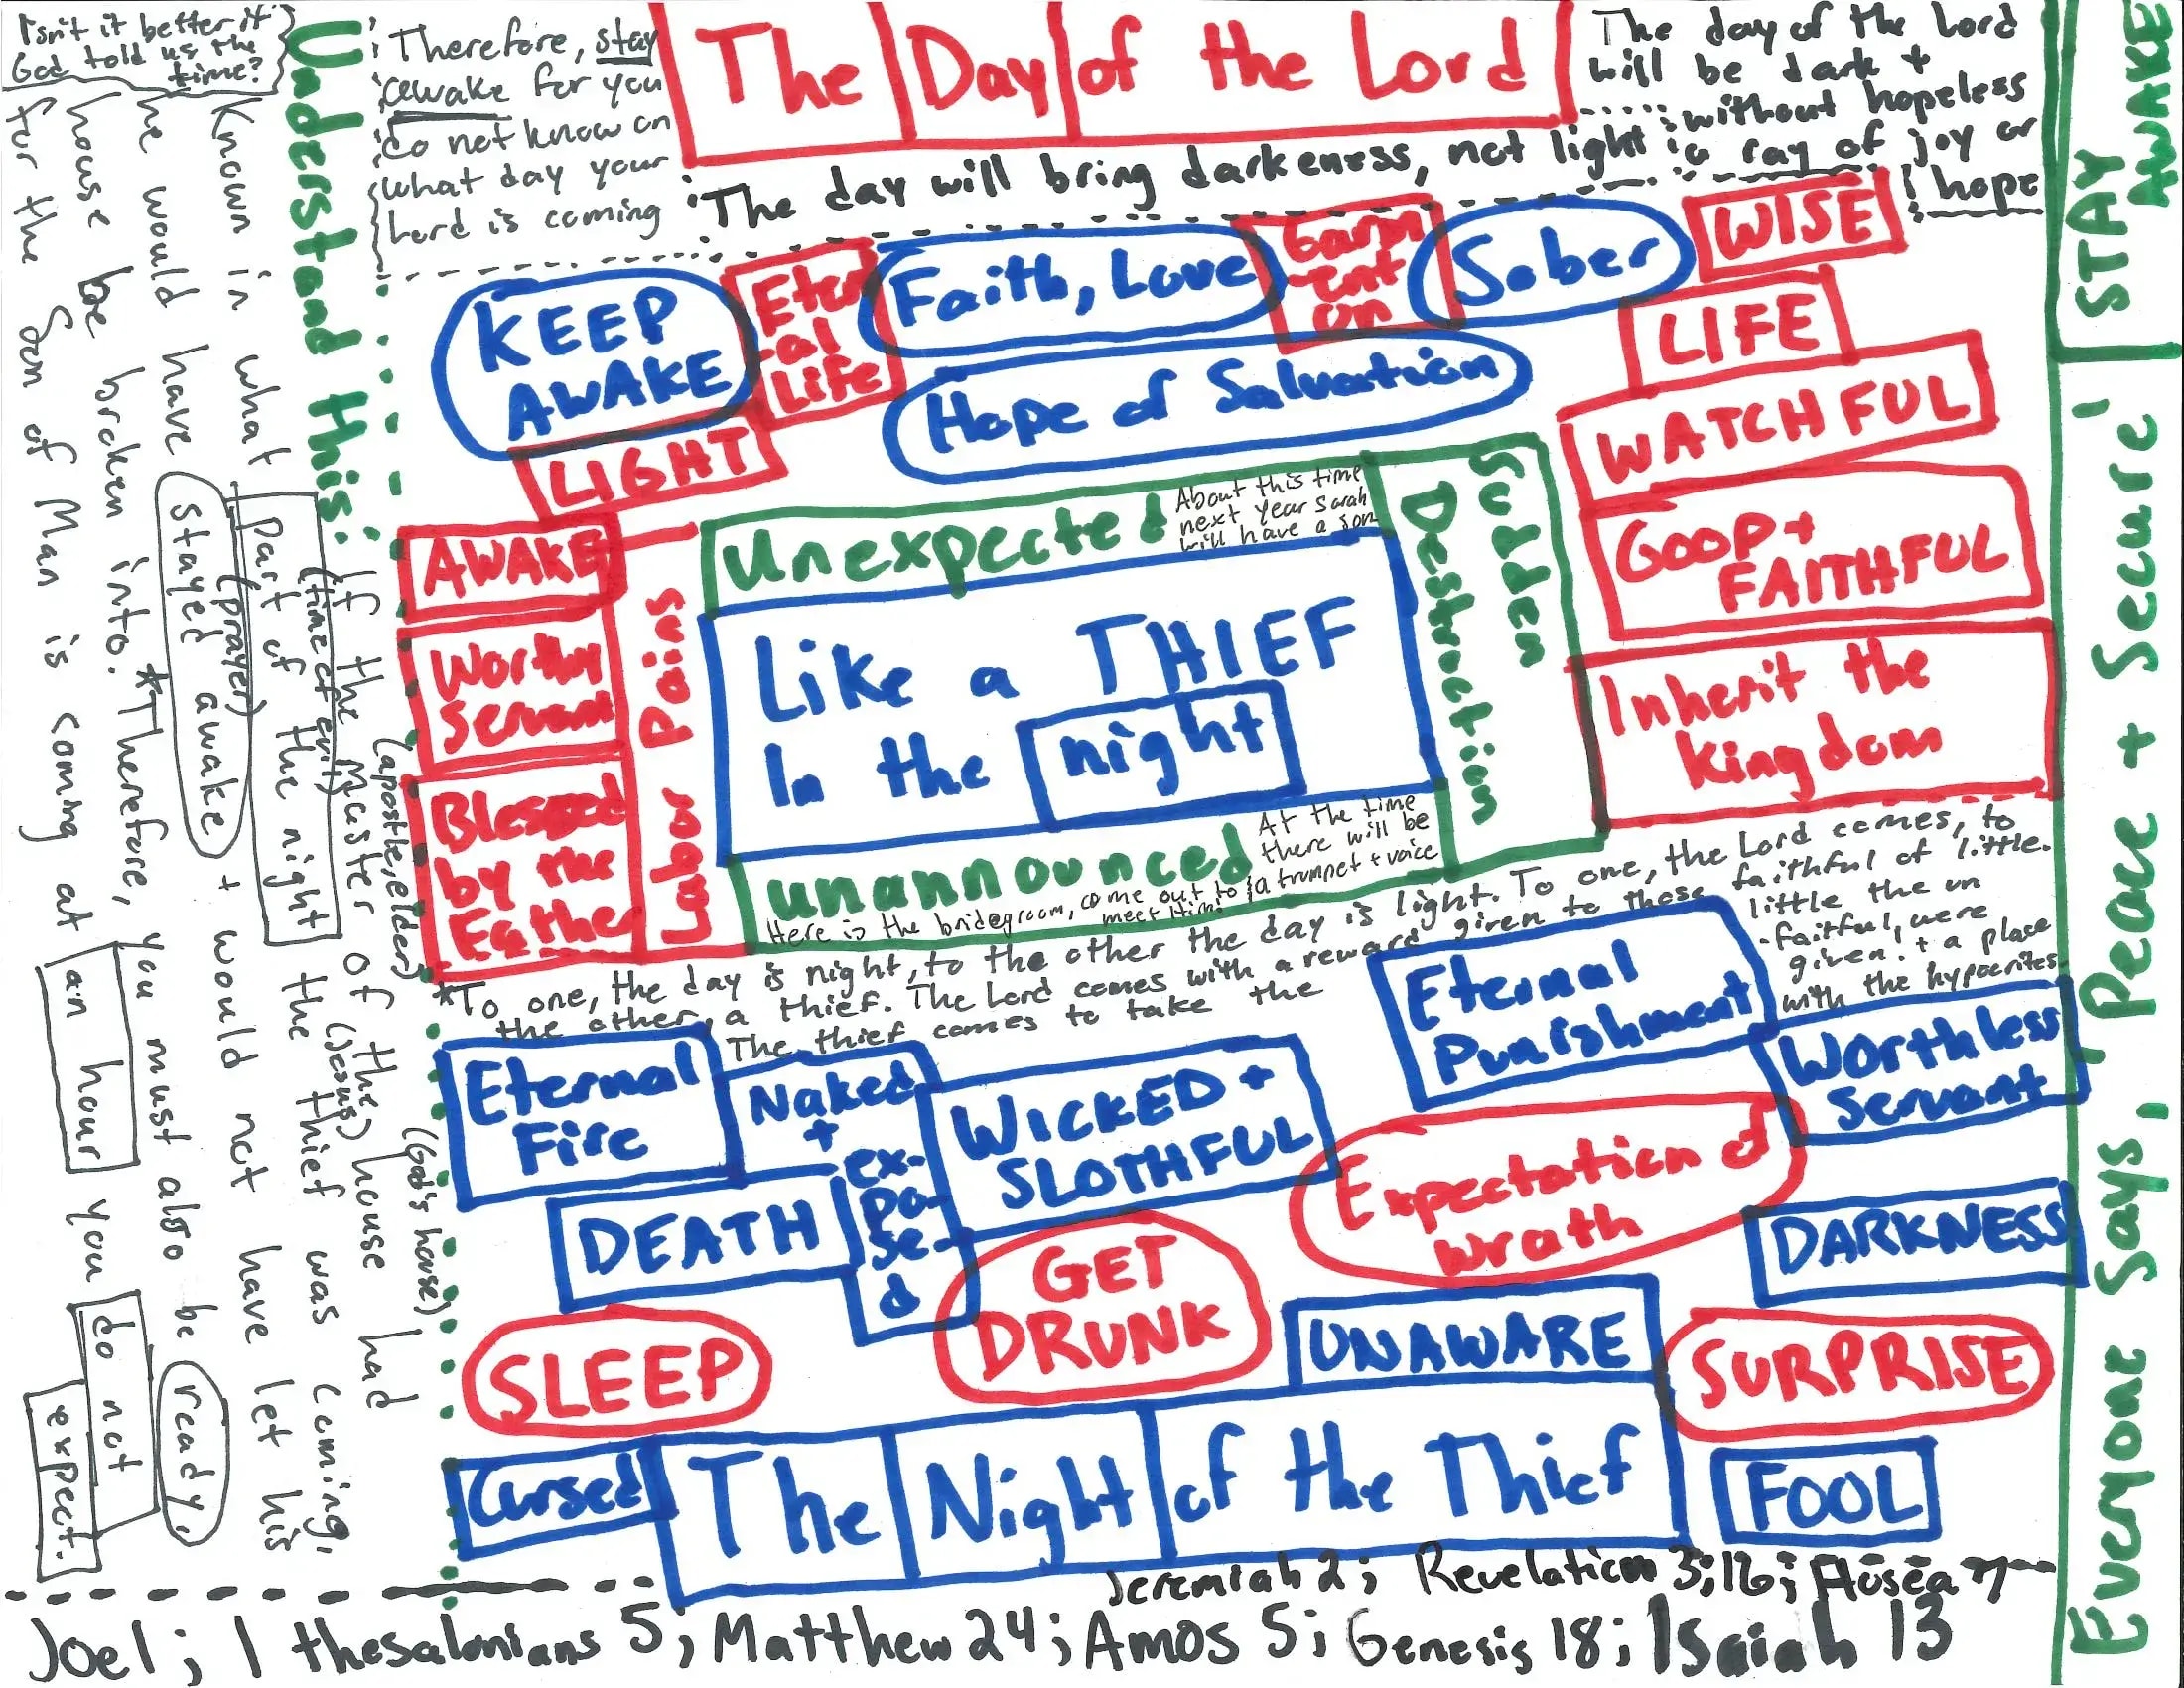 Isn't it better if
God told us the
time?
Understand this:
If the Master of the house had
(apostle, elder)
(Jesus)
(God's house)
Known in what Part of the night the thief was coming,
(time of evil)
he would have stayed awake + would not have let his
(prayer)
house be broken into. *Therefore, you must also be ready,
for the Son of Man is coming at an hour you do not expect.
Therefore, stay
awake for you
do not know on
what day your
Lord is coming
The Day of the Lord
The day of the Lord
will be dark +
without hopeless
a ray of joy or
hope
The day will bring darkeness, not light
STAY
AWAKE
KEEP
AWAKE
Eter
-al
Life
Faith, Love
Garm
-ent
on
Sober
WISE
Hope of Salvation
LIFE
LIGHT
WATCHFUL
Unexpected
About this time
next year Sarah
will have a son
Sudden
Destruction
GOOD +
FAITHFUL
AWAKE
Worthy
Servant
Blessed
by the
Father
Labor Pains
Like a THIEF
In the night
Inherit the
kingdom
unannounced
At the time
there will be
a trumpet + voice
Here is the bridegroom, come out to
meet Him!
*To one, the day is night, to the other the day is light. To one, the Lord comes, to
the other, a thief. The Lord comes with a reward given to those faithful of little.
The thief comes to take the
little the un
-faithful, were
given! + a place
with the hypocrites.
Eternal
Fire
Naked
+
ex-
po-
se-
d
WICKED +
SLOTHFUL
Eternal
Punishment
Worthless
Servant
DEATH
Expectation of
wrath
DARKNESS
SLEEP
GET
DRUNK
UNAWARE
SURPRISE
Cursed
The Night of the Thief
FOOL
Everyone Says, 'Peace + Secure'
Jeremiah 2; Revelation 3; 16; Hosea 7
Joel; 1 thesalonians 5; Matthew 24; Amos 5; Genesis 18; Isaiah 13